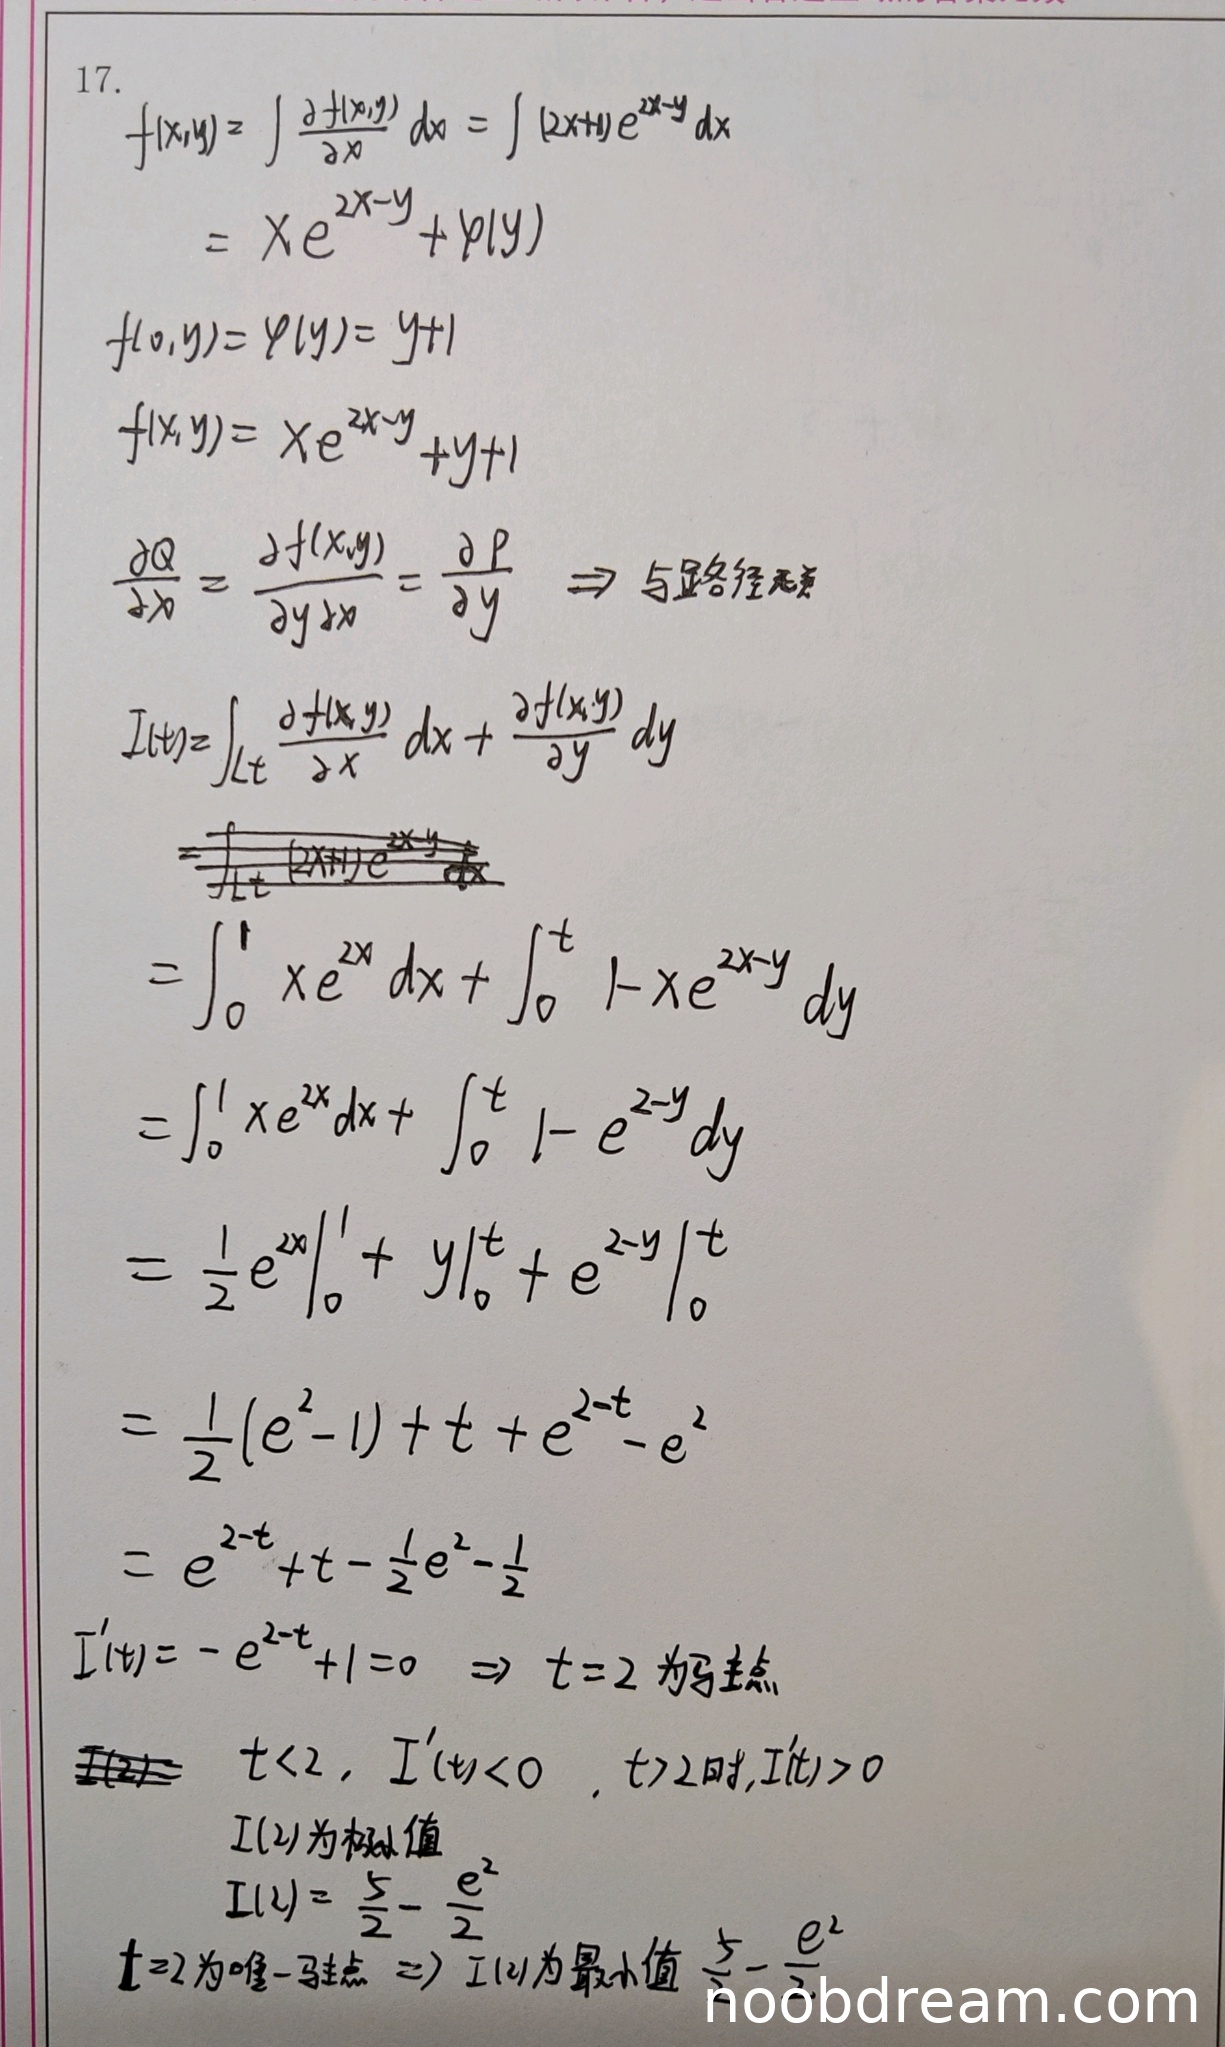 17.
f(x,y) = ∫ ∂f(x,y)/∂x dx = ∫ (2x+1)e^{2x-y} dx
= xe^{2x-y} + φ(y)
f(0,y) = φ(y) = y+1
f(x,y) = xe^{2x-y} + y+1
∂Q/∂x = ∂f(x,y)/∂y∂x = ∂P/∂y ⇒ 与路径无关
I(t) = ∫_{Lt} ∂f(x,y)/∂x dx + ∂f(x,y)/∂y dy
= ∫_0^1 xe^{2x} dx + ∫_0^t 1-xe^{2x-y} dy
= ∫_0^1 xe^{2x} dx + ∫_0^t 1-e^{2-y} dy
= 1/2 e^{2x}|_0^1 + y|_0^t + e^{2-y}|_0^t
= 1/2 (e^2-1) + t + e^{2-t} - e^2
= e^{2-t} + t - 1/2 e^2 - 1/2
I'(t) = -e^{2-t} + 1 = 0 ⇒ t=2 为驻点
I(2)= t<2, I'(t)<0 , t>2时, I'(t)>0
I(2)为极小值
I(2) = 5/2 - e^2/2
t=2为唯一驻点 ⇒ I(2)为最小值 5/2 - e^2/2
noobdream.com